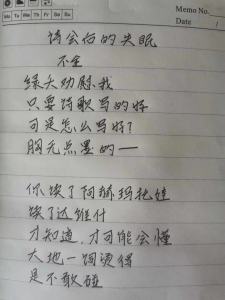 Mo Tu We Th Fr Sa Su
Memo No.
Date /
诗会后的失眠
不全
绿大劝慰我
只要诗歌写的好
可是怎么写好？
胸无点墨的一
你读了阿赫玛托娃
读了达维什
才知道，才可能会懂
大地一词读得
是不敢碰